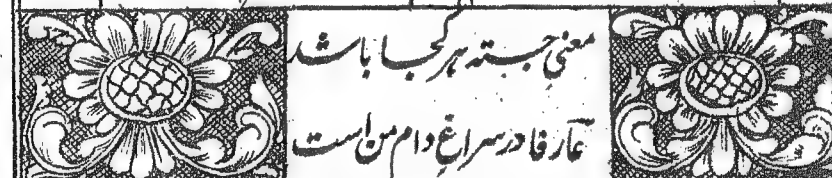 معنیِ جسته ہر کجا باشد
عارفا در سراغِ دام من است